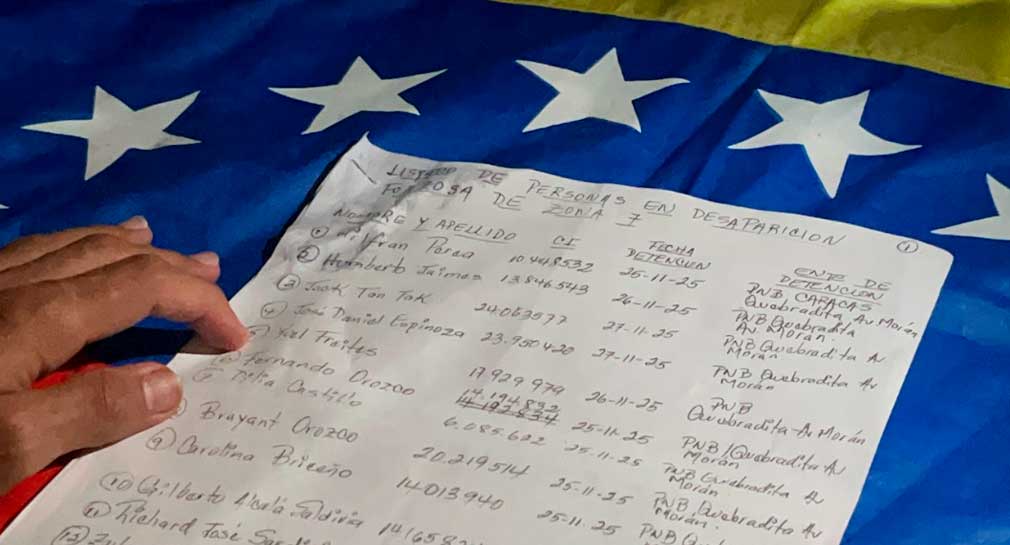 LISTADO DE PERSONAS EN DESAPARICION ①
FORZOSA DE ZONA 7
NOMBRE Y APELLIDO CI FECHA DETENCION ENTE DE DETENCION
① Wilfran Parea 10448532 25-11-25 PNB CARACAS Quebradita Av Morán
② Humberto Jaimes 13.846.543 26-11-25 PNB Quebradita Av. Morán.
③ Jack Tan Tak 24063577 27-11-25 PNB Quebradita Av Morán
④ José Daniel Espinoza 23.950420 27-11-25 PNB Quebradita Av Morán
⑤ Freites 17929979 26-11-25 PNB Quebradita-Av Morán
⑥ Fernando Orozco 14.194.892 25-11-25 PNB/Quebradita Av Morán
⑦ Castillo 6.085.622 25.11.25 PNB Quebradita Av Morán
Brayant Orozco 20.219514 25-11-25 PNB Quebradita Av Morán.
⑨ Carolina Briceño 14013940 25-11.25 PNB
⑩ Gilberto Saldivia 141658
⑪ Richard José
⑫